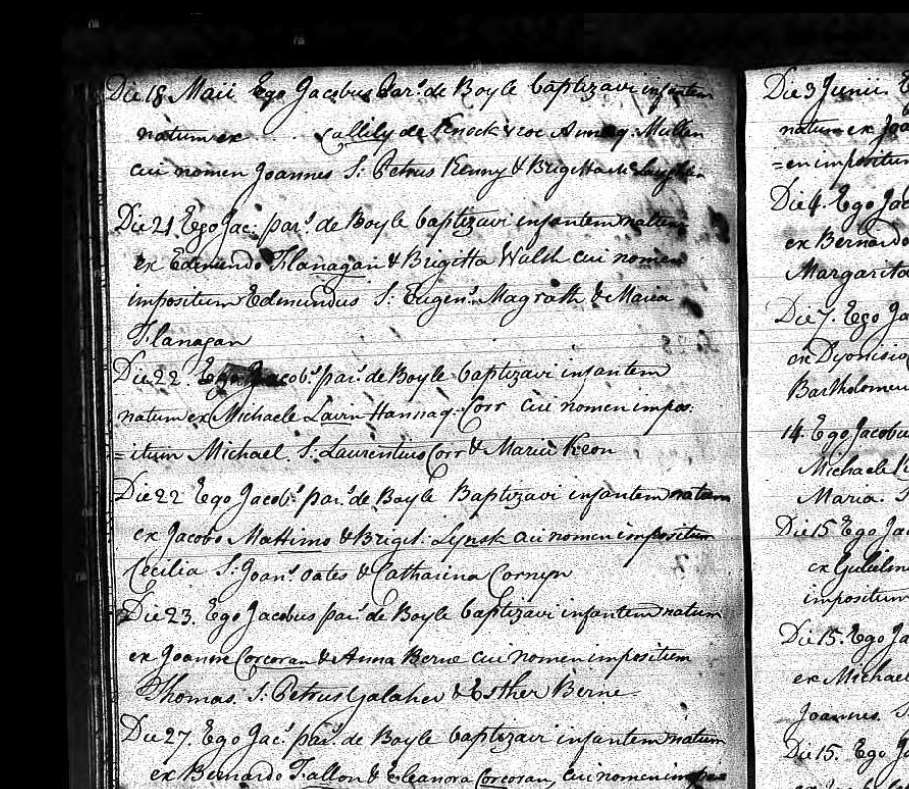 Die 18 Maii Ego Jacobus Par.s de Boyle baptizavi infantem
natum ex Callily de Knock Anna Mullen
cui nomen Joannes S: Petrus Kenny & Brigitta
Die 21. Ego Jac: par.s de Boyle baptizavi infantem natum
ex Edmundo Flanagan & Brigitta Walsh cui nomen
impositum Edmundus S: Eugen.s Magrath & Maria
Flanagan
Die 22. Ego Jacob.s par.s de Boyle baptizavi infantem
natum ex Michaele Lavin Hannaq. Corr cui nomen impos:
=itum Michael. S: Laurentius Corr & Maria Keon
Die 22 Ego Jacob.s par.s de Boyle Baptizavi infantem natum
ex Jacobo Mattimo & Brigit: cui nomen impositum
Cecilia S: Joan.s Oates & Catharina Cornyn
Die 23. Ego Jacobus par.s de Boyle baptizavi infantem natum
ex Joanne Corcoran & Anna Berne cui nomen impositum
Thomas. S: Petrus Galaher & Esther Berne
Die 27. Ego Jac.s par.s de Boyle baptizavi infantem natum
ex Bernardo Fallon & Eleanora Corcoran, cui nomen
Die 3 Junii. E
natum ex Joa
=en impositum
Die 4. Ego Jac
ex Bernardo
Margarita
Die 7. Ego Ja
ex Dyonisio
Bartholomeu
14. Ego Jacobu
Michaele
Maria. S
Die 15 Ego Jac
ex Gulielm
impositum
Die 15. Ego Ja
ex Michael
Joannes. S
Die 15. Ego J